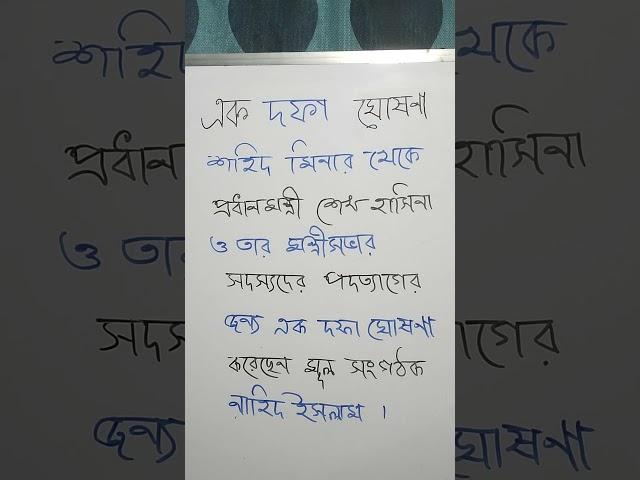 এক দফা ঘোষনা
শহিদ মিনার থেকে
প্রধানমন্ত্রী শেখ হাসিনা
ও তার মন্ত্রীসভার
সদস্যদের পদত্যাগের
জন্য এক দফা ঘোষনা
করেছেন মূল সংগঠক
নাহিদ ইসলাম ।